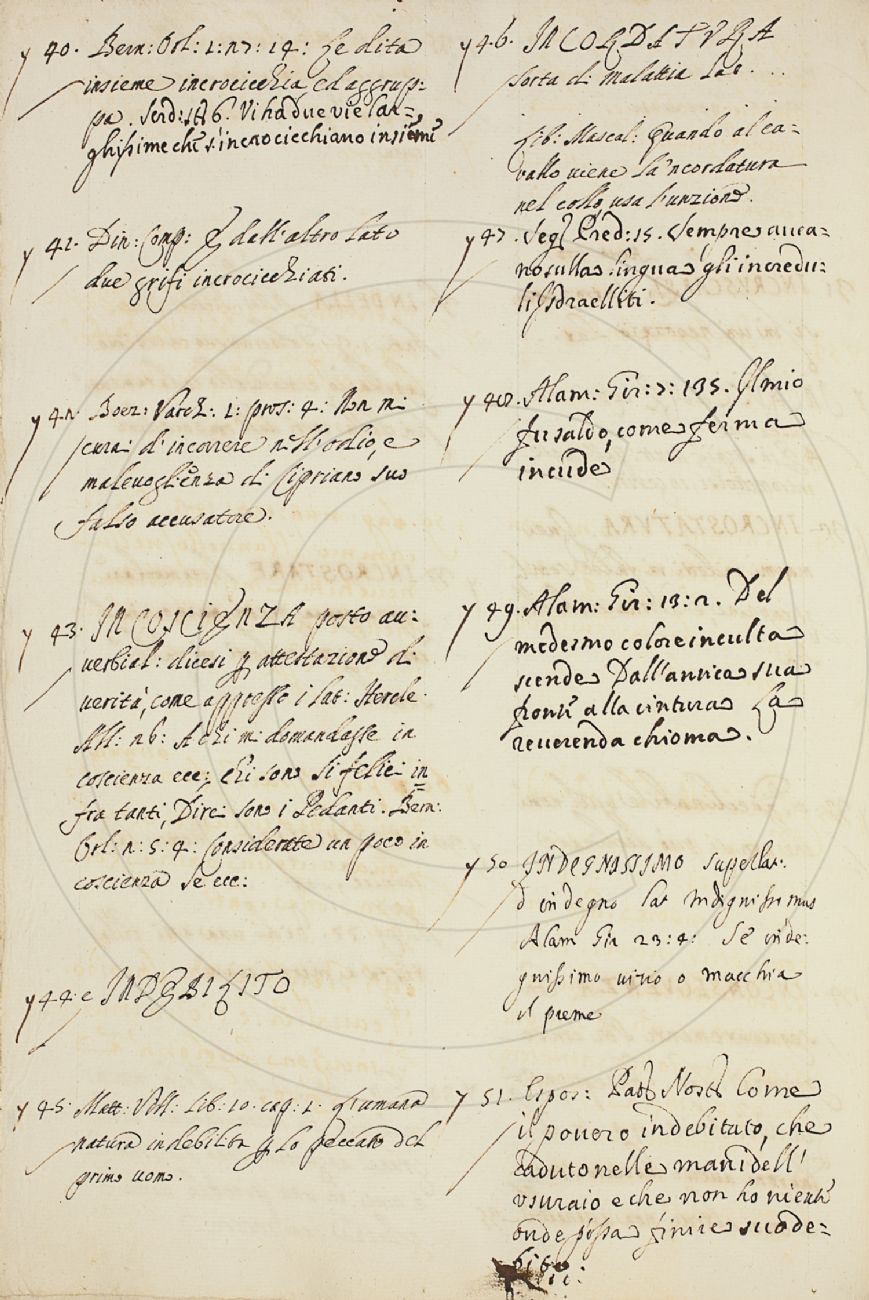 y 40. Bern: Orl: 1: 27: 14: Le dita
insieme incrocicchia, ed aggrup-
pa. Serd: 6. Vi ha due vie lar-
ghissime che s'incrocicchiano insieme
y 41. Din: Comp: E dall'altro lato
due grifi incrocicchiati.
y 42. Boez: Varch: 1: pros: 4: Non mi
curai d'incorrere nell'odio, e
malevoglienza di Cipriano suo
falso accusatore.
y 43. IN COSCIENZA posto au-
verbial: dicesi p attestazione di
verità, come appresso i lat: Hercle.
All: 26: A chi mi domandasse in
coscienza ecc: chi sono li felici in
fra tanti, Direi sono i Pedanti. Bern:
Orl: 2: 5: 4: Considerate un poco in
coscienza se ecc:
y 44. e INDEBILITO
y 45. Matt: Vill: lib: 10. cap: 1. L'umana
natura indebilita p lo peccato del
primo uomo.
y 46. INCORDATURA
sorta di malattia lat. . .
Lib: Mascal: Quando al ca-
vallo viene la 'ncordatura
nel collo usa l'unzione.
y 47. Seg: Pred: 15. Sempre avea-
no sulla lingua gli incredu-
li Isdraelliti.
y 48. Alam: Gir: 7: 135. Il mio
fu saldo, come ferma
incude
y 49. Alam: Gir: 13: 2. Del
medesmo colore inculta
scende Dall'antica sua
fronte alla cintura La
reverenda chioma.
y 50 INDEGNISSIMO superlat.
d indegno lat Indignissimus
Alam Gir 23: 4: Se inde-
gnissimo vizio o macchia
il preme
y 51. Espos: Patr Nostr Come
il povero indebitato, che
caduto nelle mani dell'
usuraio e che non ho niente
onde possa finire suo de-
bito